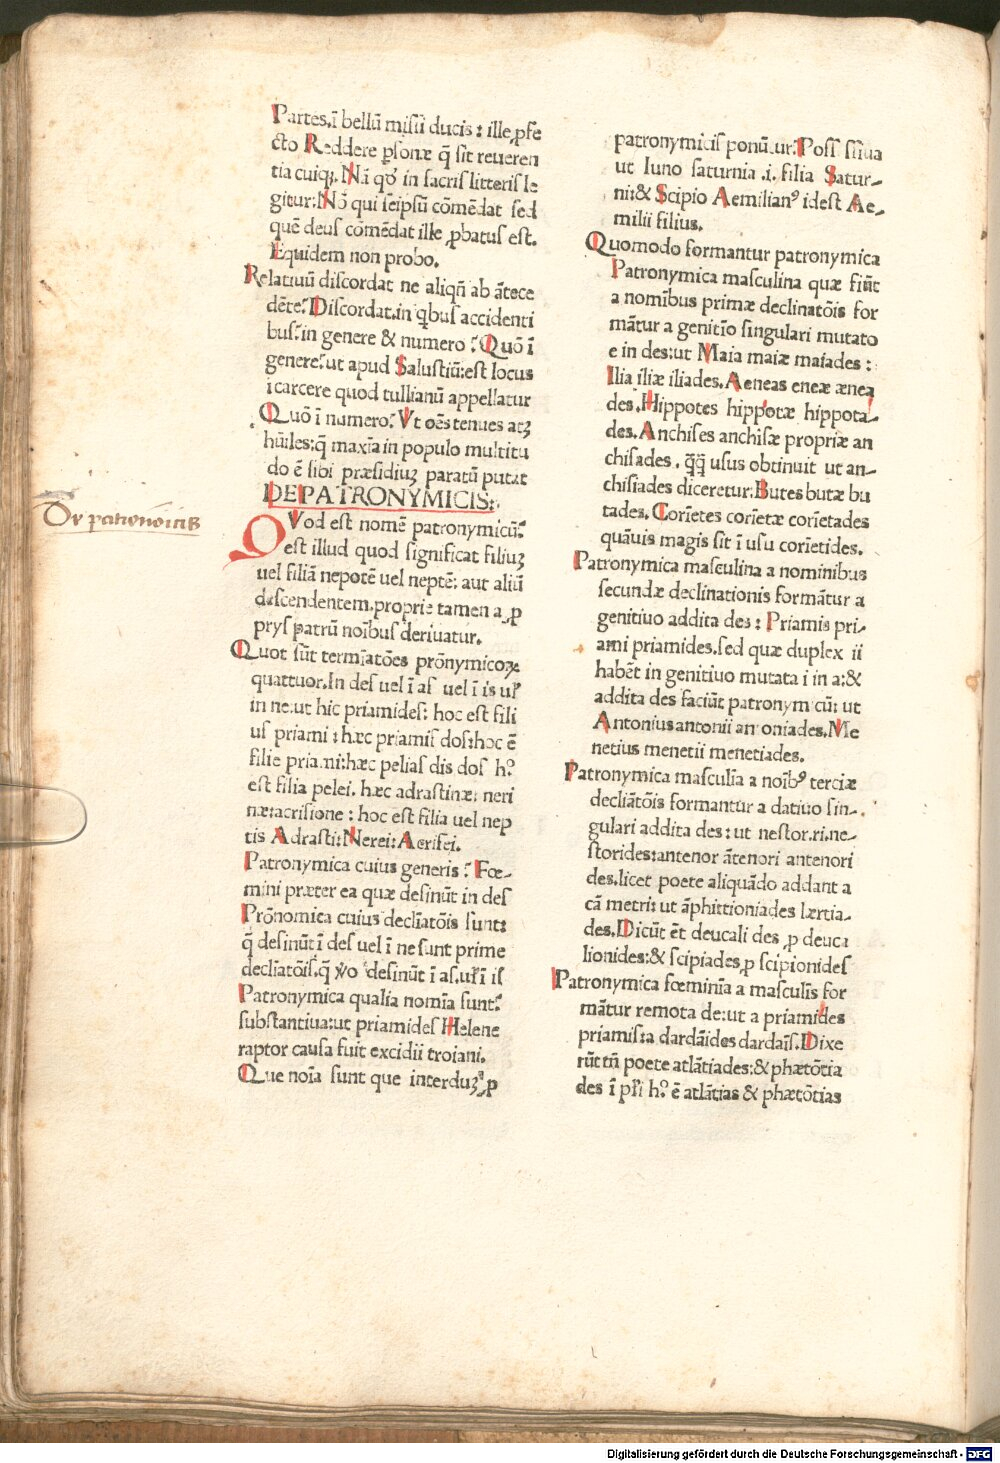 Partes.ī bellū misiī ducis : ille ꝓfe
cto Reddere ꝑsonæ q̄ sit reueren
tia cuiqꝫ. Nā qđ in sacris litteris le
gitur: Nō qui seipsū cōmēdat sed
quē deus cōmēdat ille ꝓbatus est.
Equidem non probo.
Relatiuū discordat ne aliqn̄ ab ātece
dēte? Discordat.in qbus accidenti
bus? in genere & numero ? Quō ī
genere? ut apud Salustiū: est locus
i carcere quod tullianū appellatur
Quō ī numero? Vt oēs tenues atqꝫ
hūiles: q̄ maxīa in populo multitu
do ē sibi præsidiuꝫ paratū putat
DE PATRONYMICIS:
De patronōicis
QVod est nomē patronymicū?
est illud quod significat filiuꝫ
uel filiā nepotē uel neptē: aut aliū
descendentem.proprie tamen a ꝓ
prys patrū noībus deriuatur.
Quot sūt termīatōes prōnymicoꝝ
quattuor. In des uel ī as uel ī is ul̄
in ne: ut hic priamides: hoc est fili
us priami : hæc priamis dos: hoc ē
filie priami: hæc pelias dis dos hꝰ
est filia pelei. hæc adrastinæ: neri
næ: acrisione : hoc est filia uel nep
tis Adrasti: Nerei: Acrisei.
Patronymica cuius generis ? Fœ-
mini præter ea quæ desinūt in des
Prōnomica cuius declīatōis sunt:
q̄ desinūt ī des uel ī ne sunt prime
decliatōis. q̄ ỽo desinūt ī as. ul̄ ī is
Patronymica qualia nomīa sunt?
substantiua: ut priamides Helene
raptor causa fuit excidii troiani.
Que noīa sunt que interduꝫ ꝓ
patronymicis ponūtur? Poss̄ ssiua
ut Iuno saturnia .i. filia Satur-
nii: & Scipio Aemilianꝰ id est Ae-
milii filius.
Quomodo formantur patronymica
Patronymica masculina quæ fiūt
a nomībus primæ declinatōis for
mātur a genitīo singulari mutato
e in des: ut Maia maiæ maiades :
Ilia iliæ iliades. Aeneas eneæ ænea
des. Hippotes hippotæ hippota-
des. Anchises anchisæ propriæ an
chisades . q̄q̄ usus obtinuit ut an-
chisiades diceretur: Butes butæ bu
tades. Corīetes corīetæ corīetades
quāuis magis sit ī usu corīetides.
Patronymica masculina a nominibus
secundæ declinationis formātur a
genitiuo addita des : Priamis pri-
ami priamides. sed quæ duplex ii
habēt in genitiuo mutata i in a: &
addita des faciūt patronym cū: ut
Antonius antonii an oniades. Me
netius menetii menetiades.
Patronymica masculīa a noībꝰ terciæ
decliātōis formantur a datiuo sin-
gulari addita des : ut nestor.ri.ne-
storides: antenor ātenori antenori
des. licet poete aliquādo addant a
cā metri: ut āphittioniades lærtia-
des. Dicūt ēt deucali des ꝓ deuca
lionides: & scipiades ꝓ scipionides
Patronymica fœminīa a masculīs for
mātur remota de: ut a priamides
priamis: a dardāides dardaīs. Dixe
rūt tn̄ poete atlātiades: & phætōtia
des ī pl̄i hꝰ ē atlātias & phætōtias
Digitalisierung gefördert durch die Deutsche Forschungsgemeinschaft - DFG